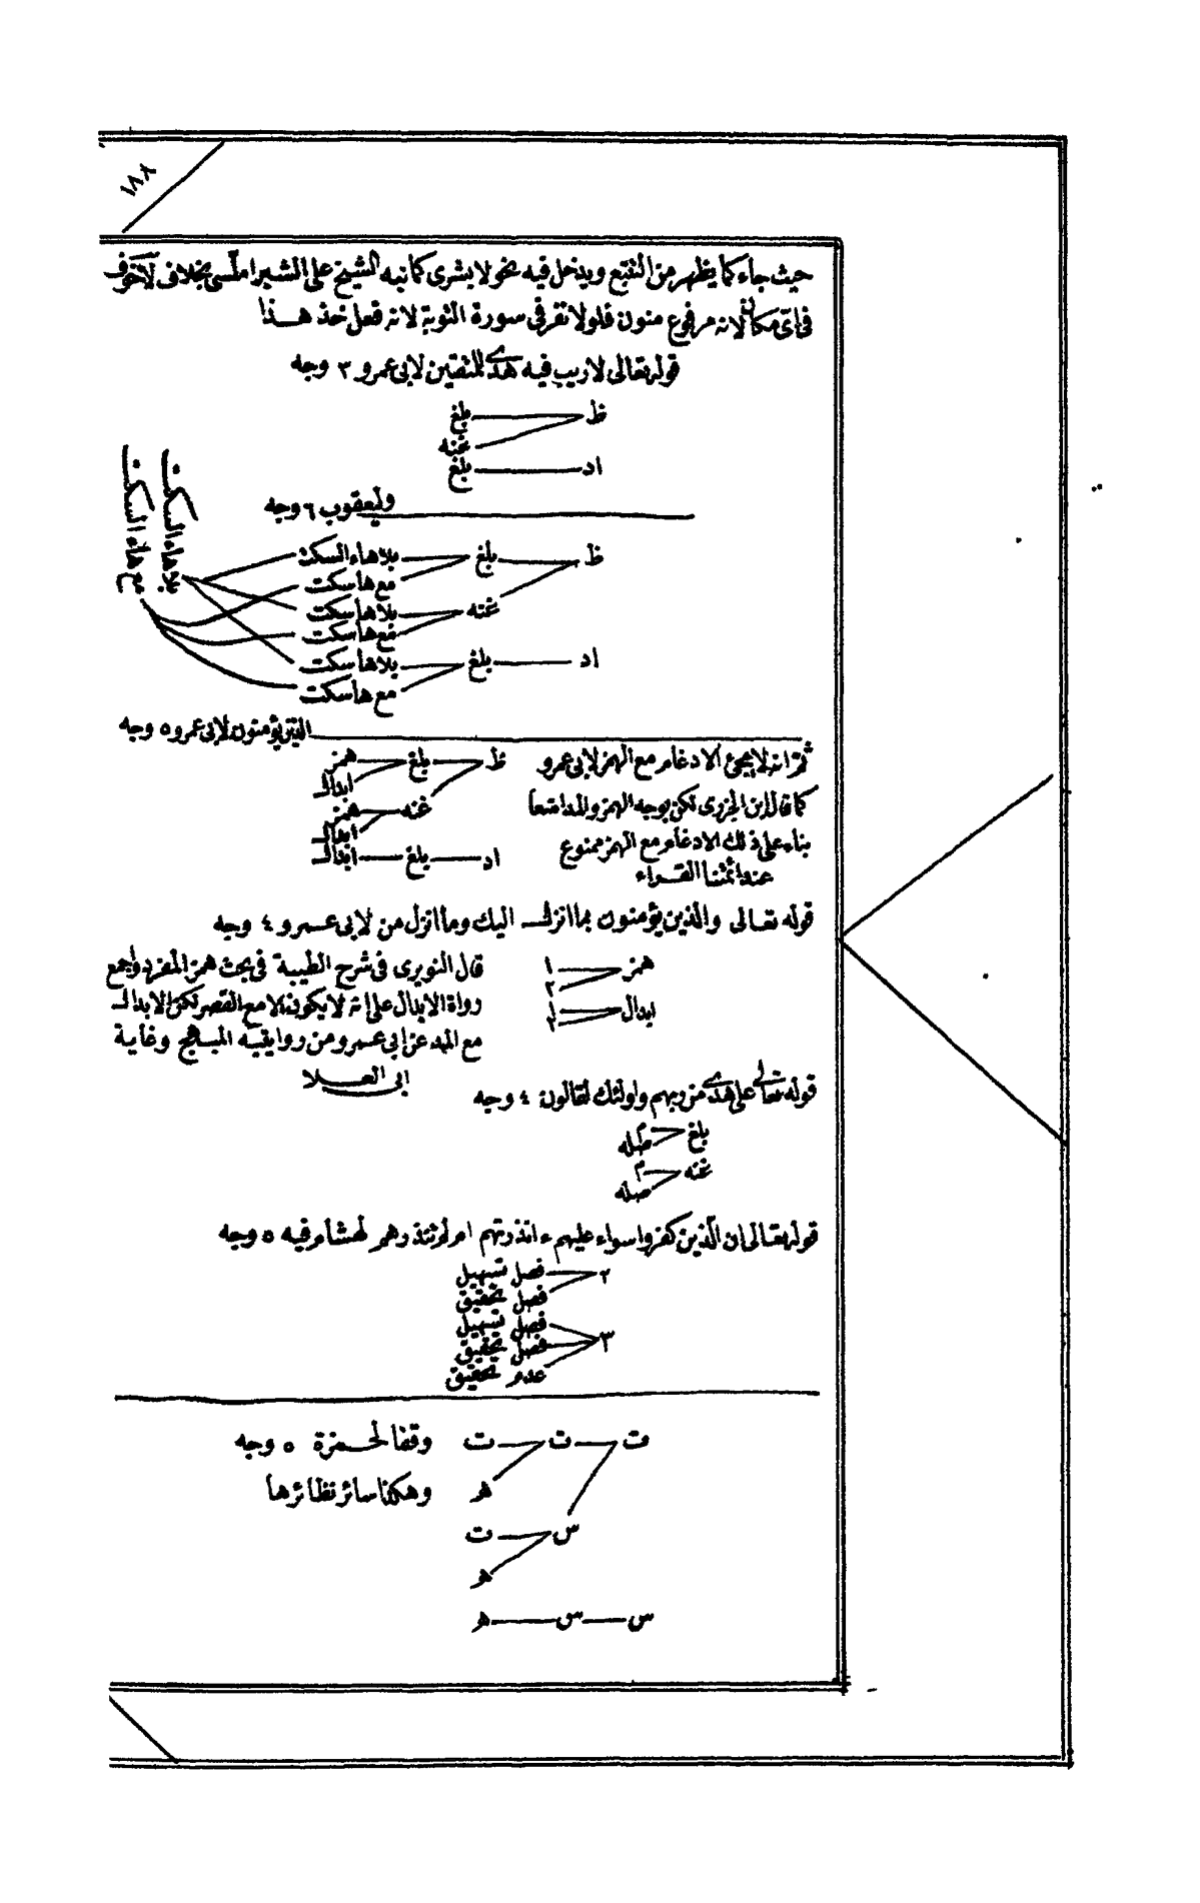 ٢٨١
حيث جاء كما يظهر من التتبع ويدخل فيه نحو لا بشرى كما نبه الشيخ على الشبراملسى بخلاف لا خوف
فى اى مكان لانه مرفوع منون فلولا نفر فى سورة التوبة لانه فعل خذ هـذا
قوله تعالى لا ريب فيه هدى للمتقين لابى عمرو ٣ وجه
ظ بلغ
غنه
اد بلغ
وليعقوب ٦ وجه
بلا هاء السكت
مع هاء السكت
ظ بلغ بلا هاء السكت
مع ها سكت
غنه بلا ها سكت
مع ها سكت
اد بلغ بلا ها سكت
مع ها سكت
الذين يؤمنون لابى عمرو ٥ وجه
ثم انه لا يجئ الادغام مع الهمز لابى عمرو
كما قال ابن الجزرى لكن يوجه الهمز والمد امتنعا
بناء على ذلك الادغام مع الهمز ممنوع
عند ائمتنا القـراء
ظ بلغ همز
ابدال
غنه همز
ابدال
اد بلغ ابدال
قوله تعـالى والذين يؤمنون بما انزل اليك وما انزل من لابى عـمرو ٤ وجه
همز ١
٢
ابدال ١
٢
قال النويرى فى شرح الطيبة فى بحث همز المفرد واجمع
رواة الابدال على انه لا يكون الا مع القصر لكن الابدال
مع المد عن ابى عـمرو من روايتيه المبـهج وغاية
ابى العـلا
قوله تعالى على هدى من ربهم واولئك لقالون ٤ وجه
بلغ ٢
صله
غنه ٢
صله
قوله تعـالى ان الذين كفروا سواء عليهم ءانذرتهم ام لم تنذرهم لهشام فيه ٥ وجه
٢ فصل تسهيل
فصل تحقيق
٣ فصل تسهيل
فصل تحقيق
عدم تحقيق
ت ت ت وقفا لحـمزة ٥ وجه
هـ وهكذا سائر نظائرها
س ت
هـ
س س هـ